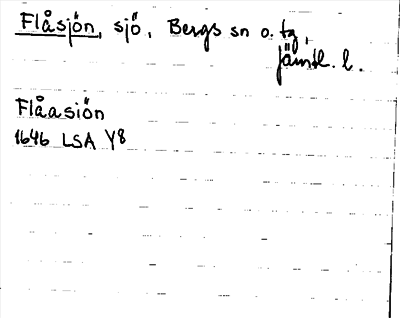 Flåsjön, sjö, Bergs sn o. tg,
Jämtl. l.
Flåasiön
1646 LSA Y8